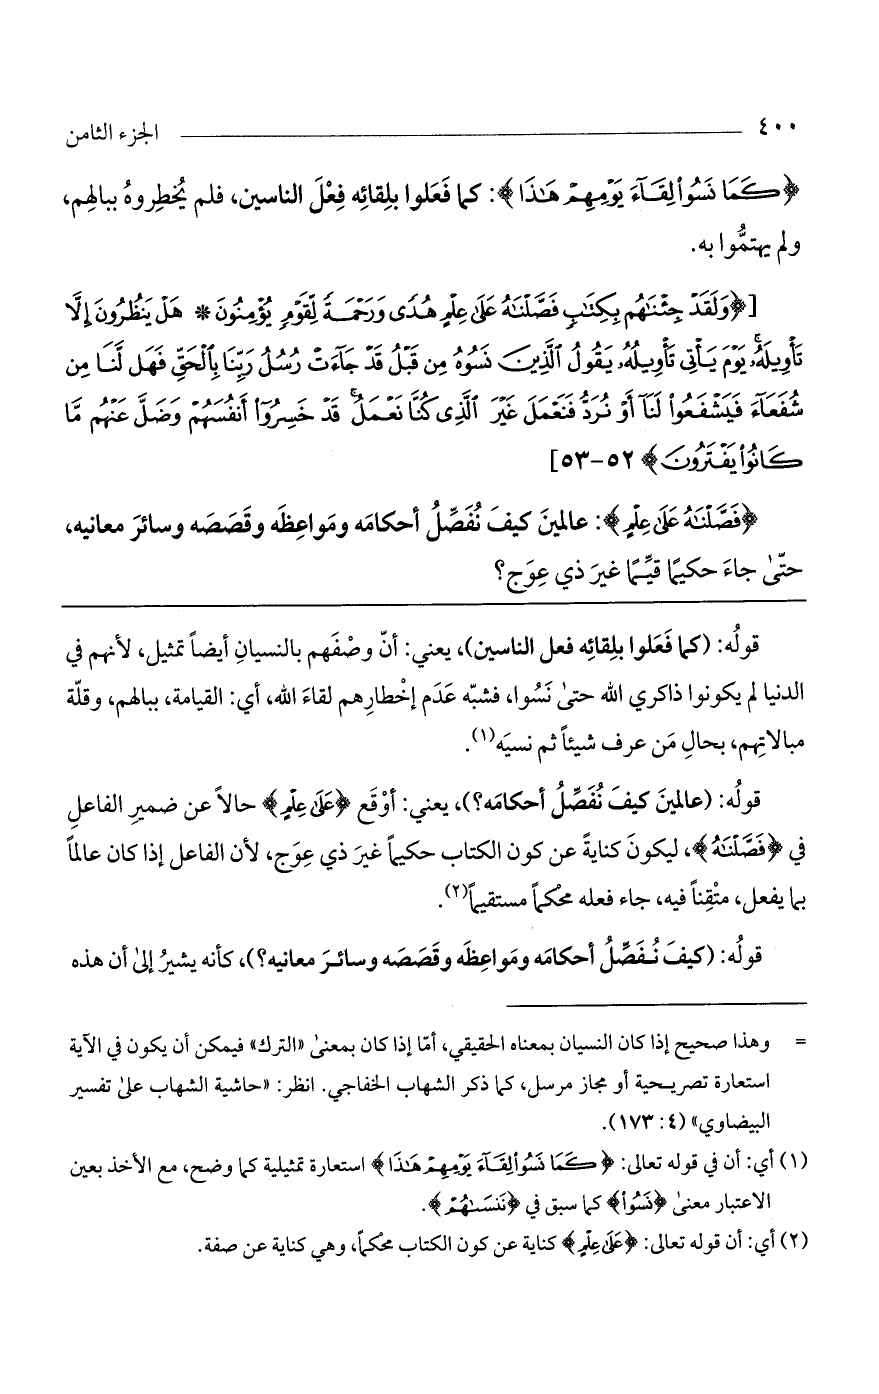 ٤٠٠ الجزء الثامن
﴿كَمَا نَسُوا۟ لِقَآءَ يَوْمِهِمْ هَٰذَا﴾: كما فَعَلوا بلِقائِه فِعْلَ الناسين، فلم يُخطِروهُ ببالهِم،
ولم يهتمُّوا به.
[﴿وَلَقَدْ جِئْنَٰهُم بِكِتَٰبٍ فَصَّلْنَٰهُ عَلَىٰ عِلْمٍ هُدًى وَرَحْمَةً لِّقَوْمٍ يُؤْمِنُونَ * هَلْ يَنظُرُونَ إِلَّا
تَأْوِيلَهُۥ ۚ يَوْمَ يَأْتِى تَأْوِيلُهُۥ يَقُولُ ٱلَّذِينَ نَسُوهُ مِن قَبْلُ قَدْ جَآءَتْ رُسُلُ رَبِّنَا بِٱلْحَقِّ فَهَل لَّنَا مِن
شُفَعَآءَ فَيَشْفَعُوا۟ لَنَآ أَوْ نُرَدُّ فَنَعْمَلَ غَيْرَ ٱلَّذِى كُنَّا نَعْمَلُ ۚ قَدْ خَسِرُوٓا۟ أَنفُسَهُمْ وَضَلَّ عَنْهُم مَّا
كَانُوا۟ يَفْتَرُونَ﴾ ٥٢-٥٣]
﴿فَصَّلْنَٰهُ عَلَىٰ عِلْمٍ﴾: عالمينَ كيفَ نُفَصِّلُ أحكامَه ومَواعِظَه وقَصَصَه وسائرَ معانيه،
حتّىٰ جاءَ حكيمًا قيِّمًا غيرَ ذي عِوَجٍ؟
قولُه: (كما فَعَلوا بلِقائِه فعل الناسين)، يعني: أنّ وصْفَهم بالنسيانِ أيضاً تمثيل، لأنهم في
الدنيا لم يكونوا ذاكري الله حتىٰ نَسُوا، فشبّه عَدَم إخْطارِهم لقاءَ الله، أي: القيامة، ببالهم، وقلّة
مبالاتِهم، بحالِ مَن عرف شيئاً ثم نسيَه(١).
قولُه: (عالمينَ كيفَ نُفَصِّلُ أحكامَه؟)، يعني: أوْقَع ﴿عَلَىٰ عِلْمٍ﴾ حالاً عن ضميرِ الفاعلِ
في ﴿فَصَّلْنَٰهُ﴾، ليكونَ كنايةً عن كون الكتاب حكيماً غيرَ ذي عِوَج، لأن الفاعل إذا كان عالماً
بما يفعل، متْقِناً فيه، جاء فعله محْكماً مستقيماً(٢).
قولُه: (كيفَ نُفَصِّلُ أحكامَه ومَواعِظَه وقَصَصَه وسائرَ معانيه؟)، كأنه يشيرُ إلىٰ أن هذه
= وهذا صحيح إذا كان النسيان بمعناه الحقيقي، أمّا إذا كان بمعنىٰ «الترك» فيمكن أن يكون في الآية
استعارة تصريحية أو مجاز مرسل، كما ذكر الشهاب الخفاجي. انظر: «حاشية الشهاب علىٰ تفسير
البيضاوي» (٤: ١٧٣).
(١) أي: أن في قوله تعالى: ﴿كَمَا نَسُوا۟ لِقَآءَ يَوْمِهِمْ هَٰذَا﴾ استعارة تمثيلية كما وضح، مع الأخذ بعين
الاعتبار معنىٰ ﴿نَسُوا۟﴾ كما سبق في ﴿نَنسَىٰهُمْ﴾.
(٢) أي: أن قوله تعالى: ﴿عَلَىٰ عِلْمٍ﴾ كناية عن كون الكتاب محكماً، وهي كناية عن صفة.